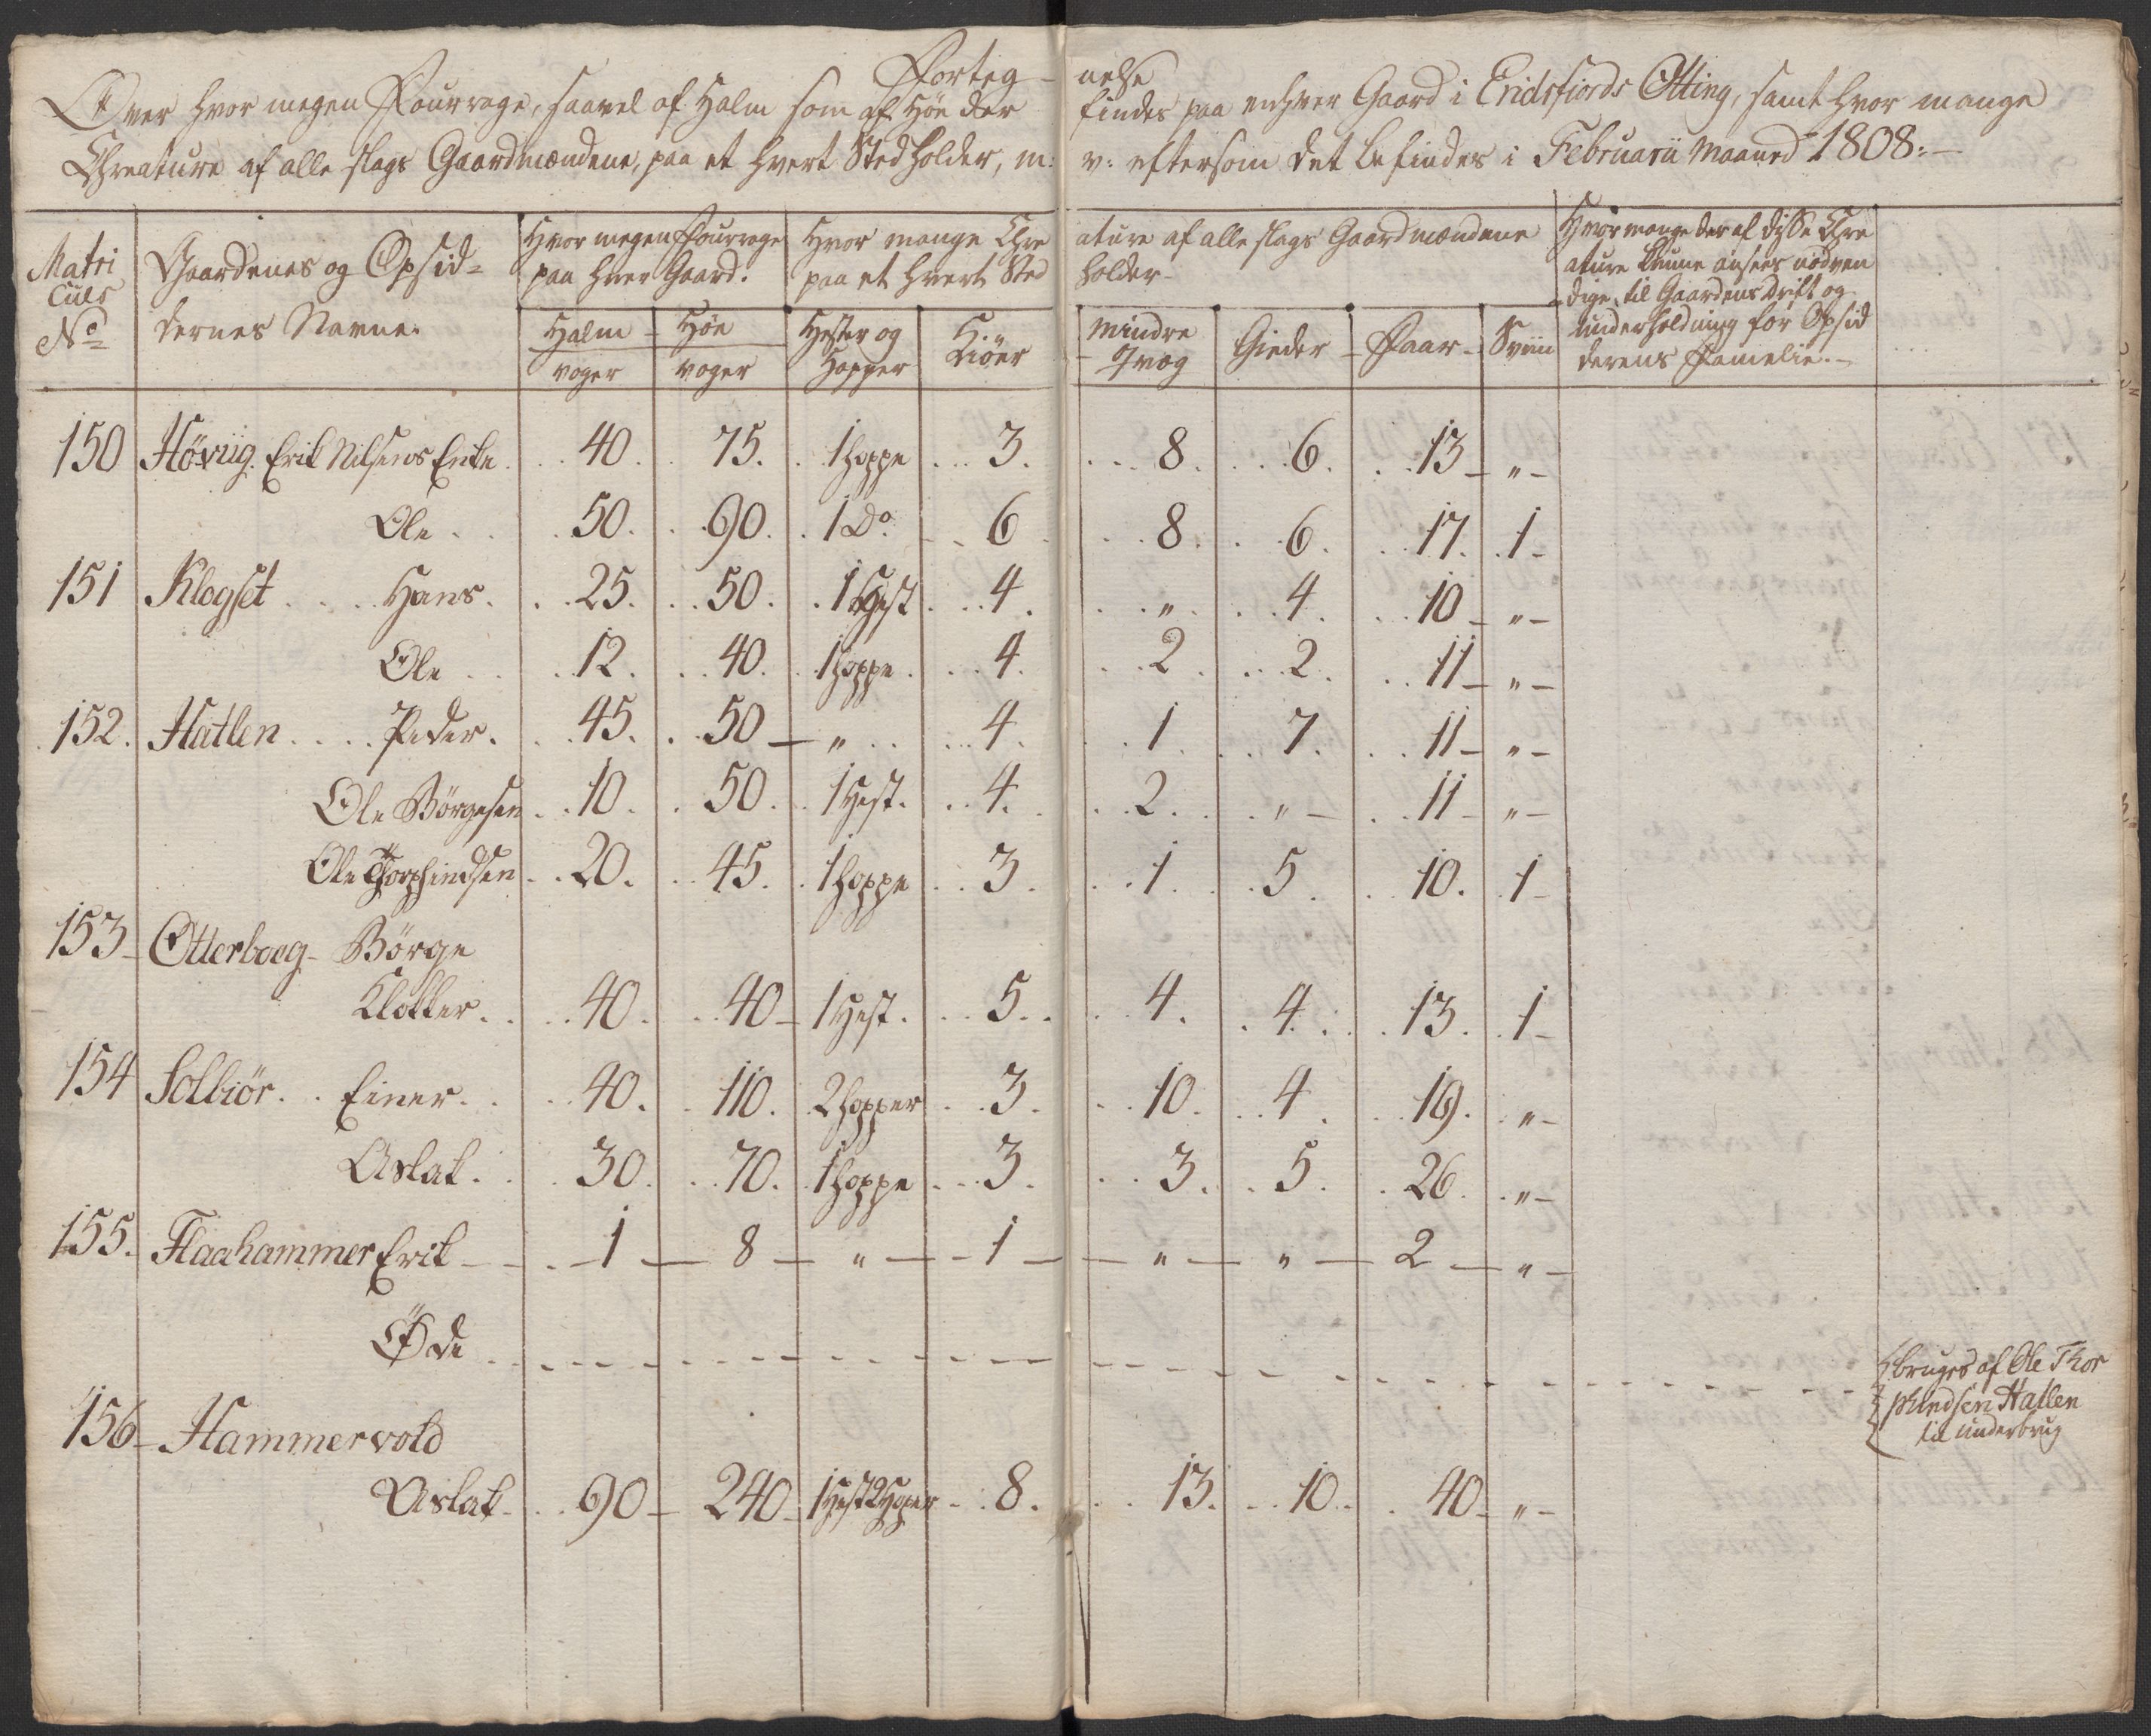 Forteg- nelse
Over hvor megen Fourrage, saavel af Halm som af Høe der findes paa enhver Gaard i Eridsfiords Otting, samt hvor mange
Chreature af alle slags Gaardmændene, paa et hvert Sted holder, m: v: eftersom det befindes i Februarii Maaned 1808:-
Matri Culs No
Gaardenes og Opsid- dernes Navne.
Hvor megen Fourrage paa hver Gaard.
Halm voger
Høe voger
Hvor mange Chre ature af alle slags Gaardmændene
paa et hvert Sted holder-
Hester og Hopper
Kiöer
Mindre Qvæg
Gieder
Faar
Sviin
Hvor mange der af disse Chre
ature kunne ansees nödven
dige, til Gaardens drift og
underholdning for Opsid
derens Famelie.-
150 Hövig. Erik Nilsens Enke. 40. 75. 1 hoppe 3. 8. 6. 13 „
Ole 50. 90. 1 Do. 6 8. 6. 17. 1
151 Klogset Hans. 25. 50. 1 Hest 4. „ 4. 10 „
Ole 12. 40. 1 hoppe 4. 2. 2. 11 „
152. Hatlen Peder. 45. 50 „ 4. 1. 7. 11 „
Ole Börgesen 10. 50. 1 Hest. 4. 2. „ 11 „
Ole Thorphindsen 20. 45. 1 hoppe 3. 1. 5. 10. 1
153 Otterboeg Börge
Klokker. 40. 40 1 Hest. 5. 4. 4. 13. 1
154 Solbiör. Einer. 40. 110. 2 hopper 3. 10. 4. 19. „
Aslak. 30. 70. 1 hoppe 3. 3. 5. 26. „
155. Flaahammer Erik 1 8 „ 1 „ „ 2 „
Øde
bruges af Ole Thor
phindsen Hatlen
til underbrug
156 Hammervold
Aslak 90 240 1 Hest 2 Hoper 8. 13. 10. 40 „